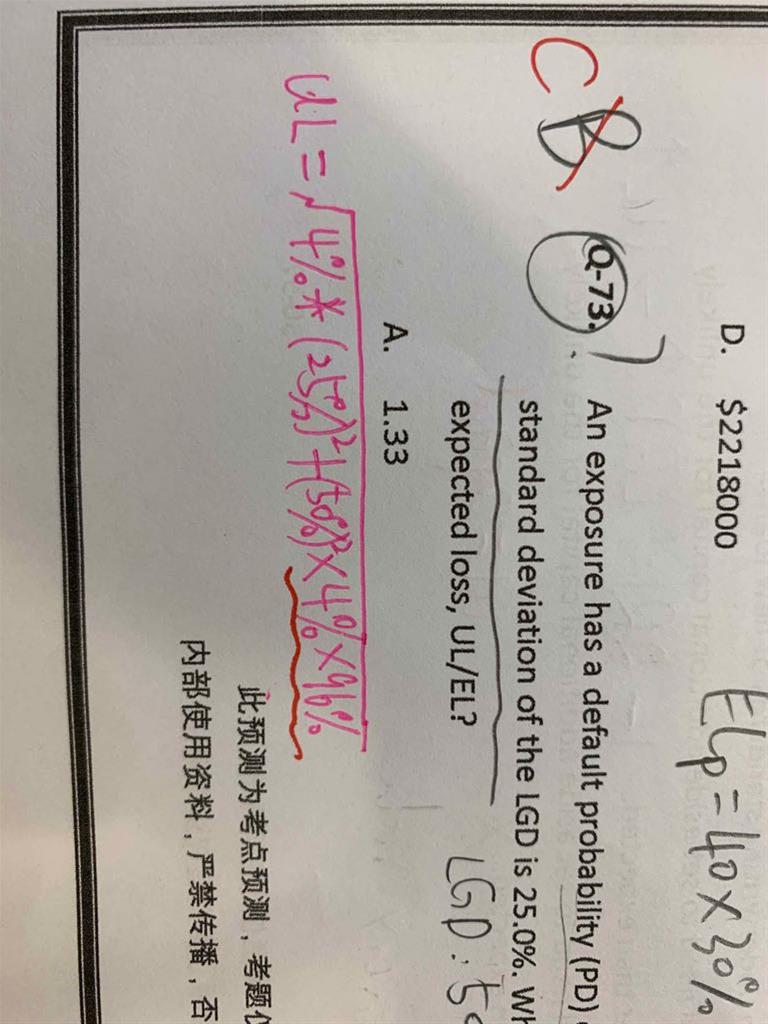 D. $2218000
ELp = 40 × 30%
C B
Q-73. An exposure has a default probability (PD)
standard deviation of the LGD is 25.0%.
expected loss, UL/EL?
LGD:
A. 1.33
UL = √4% * (25%)² + (50%)² × 4% × 96%
此预测为考点预测，考题
内部使用资料，严禁传播，否